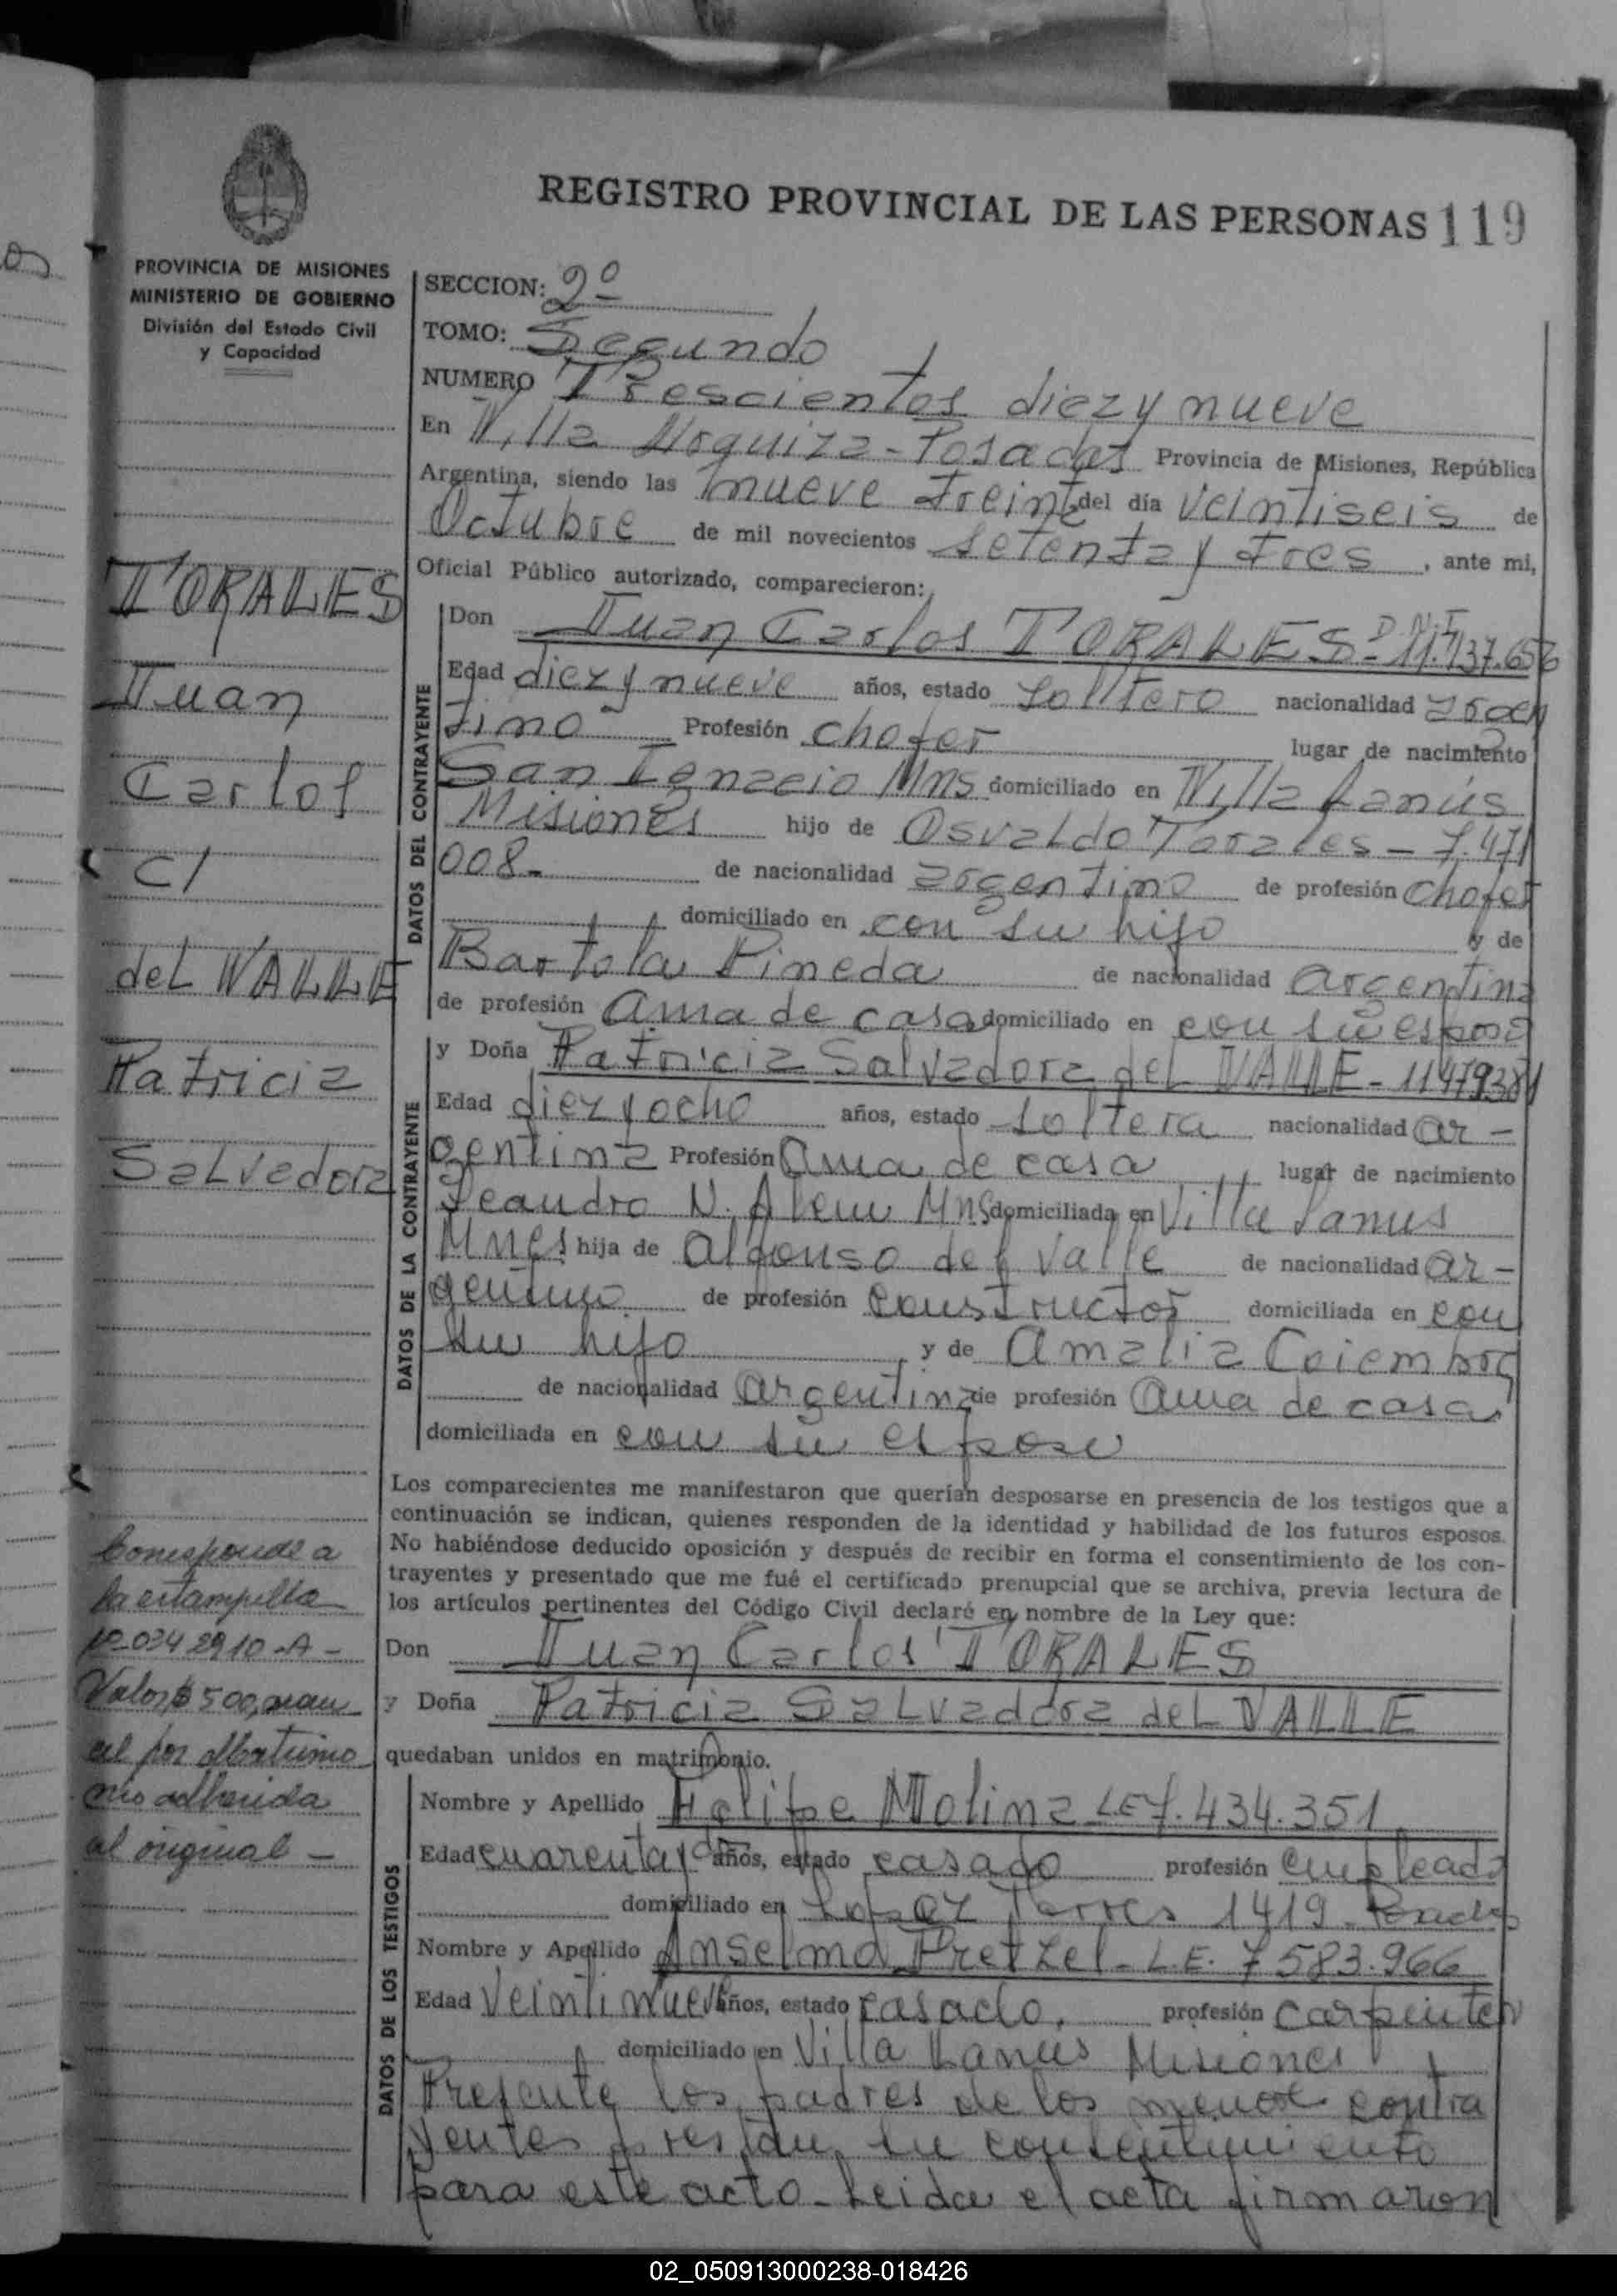 REGISTRO PROVINCIAL DE LAS PERSONAS 119
PROVINCIA DE MISIONES
MINISTERIO DE GOBIERNO
División del Estado Civil
y Capacidad
SECCION: 2º
TOMO: Segundo
NUMERO Trescientos diez y nueve
En Villa Urquiza - Posadas Provincia de Misiones, República
Argentina, siendo las nueve treinta del día veintiseis de
Octubre de mil novecientos setenta y tres, ante mi,
Oficial Público autorizado, comparecieron:
TORALES
Juan
Carlos
c/
del VALLE
Patricia
Salvadora
DATOS DEL CONTRAYENTE
Don Juan Carlos TORALES - D.N.I. 11.737.656
Edad diez y nueve años, estado soltero nacionalidad argen
tino Profesión chofer lugar de nacimiento
San Ignacio Mns domiciliado en Villa Lanús
Misiones hijo de Osvaldo Torales - 7.471
008 - de nacionalidad argentino de profesión chofer
domiciliado en con su hijo y de
Bartola Pineda de nacionalidad argentina
de profesión ama de casa domiciliado en con su esposo
DATOS DE LA CONTRAYENTE
y Doña Patricia Salvadora del VALLE - 11479381
Edad diez y ocho años, estado soltera nacionalidad ar -
gentina Profesión ama de casa lugar de nacimiento
Leandro N. Alem Mns domiciliada en Villa Lanus
Mnes hija de Alfonso del Valle de nacionalidad ar -
gentino de profesión constructor domiciliada en con
su hijo y de Amalia
de nacionalidad argentina de profesión ama de casa
domiciliada en con su esposo
Los comparecientes me manifestaron que querían desposarse en presencia de los testigos que a
continuación se indican, quienes responden de la identidad y habilidad de los futuros esposos.
No habiéndose deducido oposición y después de recibir en forma el consentimiento de los con-
trayentes y presentado que me fué el certificado prenupcial que se archiva, previa lectura de
los artículos pertinentes del Código Civil declaré en nombre de la Ley que:
Don Juan Carlos TORALES
y Doña Patricia Salvadora del VALLE
quedaban unidos en matrimonio.
Corresponde a
la estampilla
Nº 0342910 - A -
Valor $ 500,
por Matrimo
nio adherida
al original -
DATOS DE LOS TESTIGOS
Nombre y Apellido Felipe Molina LE 7.434.351
Edad cuarenta y años, estado casado profesión empleado
domiciliado en Lopez Torres 1419 Posadas
Nombre y Apellido Anselmo Pretzel - L.E. 7583.966
Edad Veintinueve años, estado casado. profesión carpintero
domiciliado en Villa Lanus Misiones
Presente los padres de los menores contra
yentes prestan su consentimiento
para este acto - Leida el acta firmaron
02_050913000238-018426